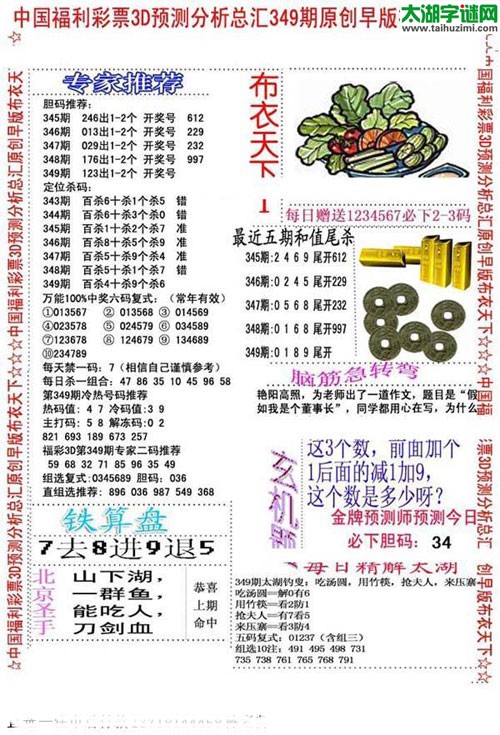 中国福利彩票3D预测分析总汇349期原创早版
太湖字谜网
www.taihuzimi.com
☆中国福利彩票3D预测分析总汇原创早版布衣天下☆☆☆中国福利彩票3D预测分析总汇原创早版布衣天
专家推荐
胆码推荐:
345期 246出1-2个 开奖号 612
346期 013出1-2个 开奖号 229
347期 029出1-2个 开奖号 232
348期 176出1-2个 开奖号 997
349期 123出1-2个 开奖号
定位杀码:
343期 百杀6十杀1个杀5 错
344期 百杀3十杀9个杀4 错
345期 百杀1十杀2个杀7 准
346期 百杀7十杀8个杀4 准
347期 百杀5十杀4个杀7 准
348期 百杀5十杀1个杀7 错
349期 百杀4十杀9个杀6
万能100%中奖六码复式: (常年有效)
①013567 ② 013568 ③ 014569
④023578 ⑤ 024579 ⑥ 034589
⑦123678 ⑧ 124679 ⑨ 134689
⑩234789
每天禁一码: 7 (相信自己谨慎参考)
每日杀一组合: 47 86 35 10 45 96 58
第349期冷热号码推荐
热码值: 4 7 冷码值: 3 9
主打码: 5 8 解冻码: 0 2
821 693 189 673 257
福彩3D第349期专家二码推荐
59 68 32 71 85 96 35 49
组选复式: 0345689 胆码: 036
直组选推荐: 896 036 987 549 368
铁算盘
7去8进9退5
北京圣手
山下湖，
一群鱼，
能吃人，
刀剑血
恭喜
上期
命中
布衣天下
每日赠送1234567必下2-3码
最近五期和值尾杀
345期: 2 4 6 9 尾开612
346期: 0 2 4 5 尾开229
347期: 0 5 6 8 尾开232
348期: 0 1 6 8 尾开997
349期: 0 1 8 9 尾开
脑筋急转弯
艳阳高照，为老师出了一道作文，题目是“假
如我是个董事长”，同学都用心在写，为什么
这3个数，前面加个
1后面的减1加9，
这个数是多少呀？
金牌预测师预测今日
必下胆码: 34
每日精解太湖
349期太湖钓叟: 吃汤圆，用竹筷，抢夫人，来压寨
吃汤圆==解0有6
用竹筷==看2防1
抢夫人==有7看5
来压寨==看3防4
五码复式: 01237 (含组三)
组选10注: 491 495 498 731
735 738 761 765 768 791